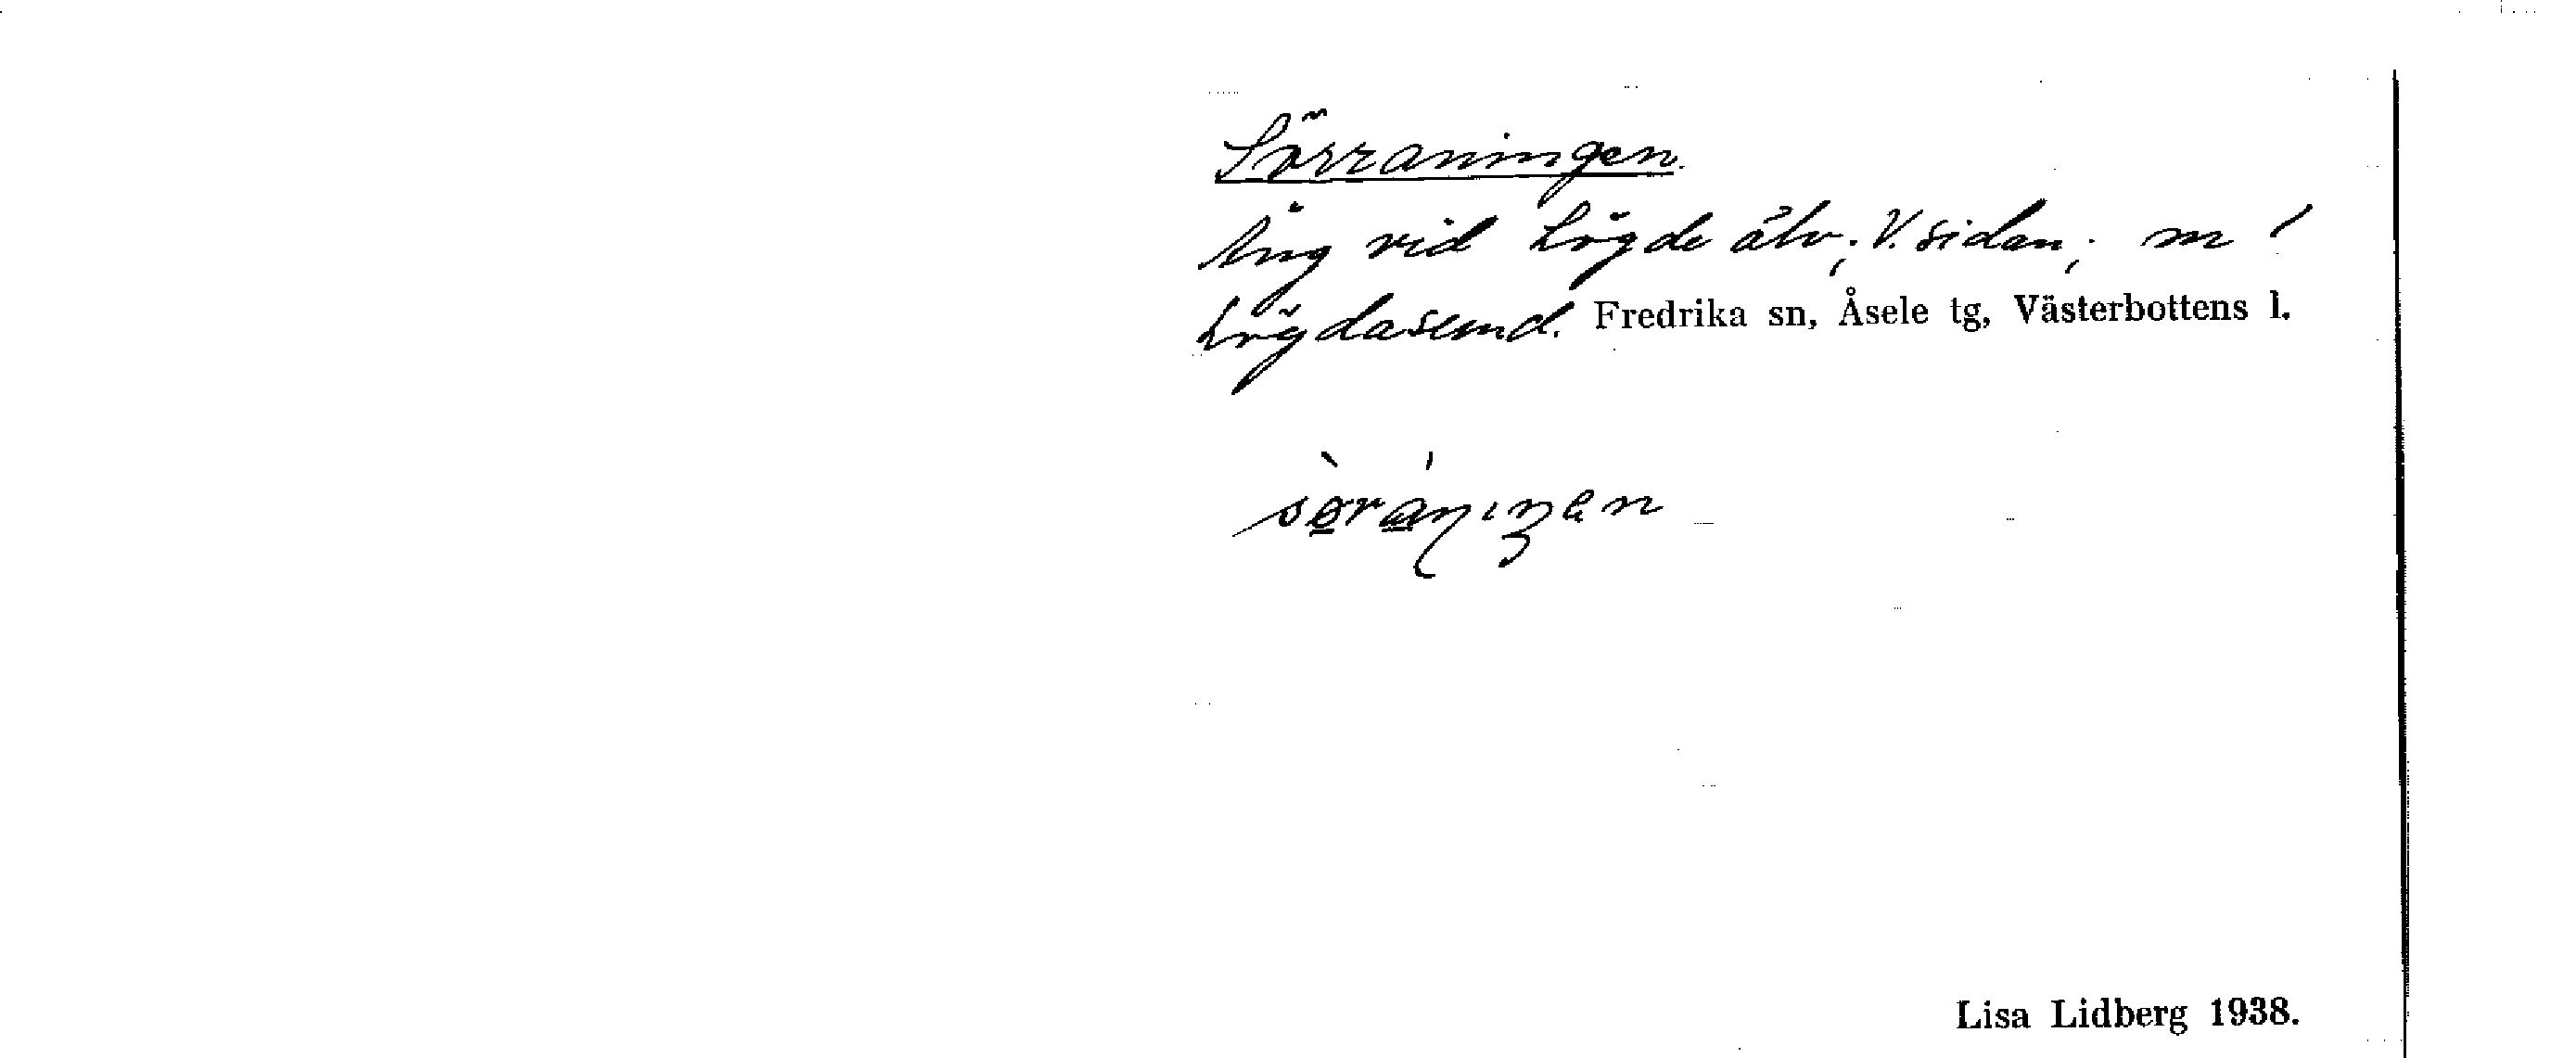 Sörraningen.
Äng vid Lögde älv; V. sidan; m /
Lögdasund. Fredrika sn, Åsele tg, Västerbottens l.
Lisa Lidberg 1938.